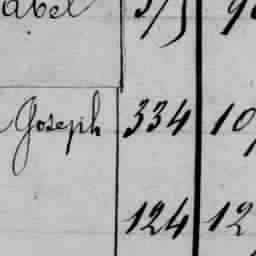 abel
Joseph 334 10
124 12